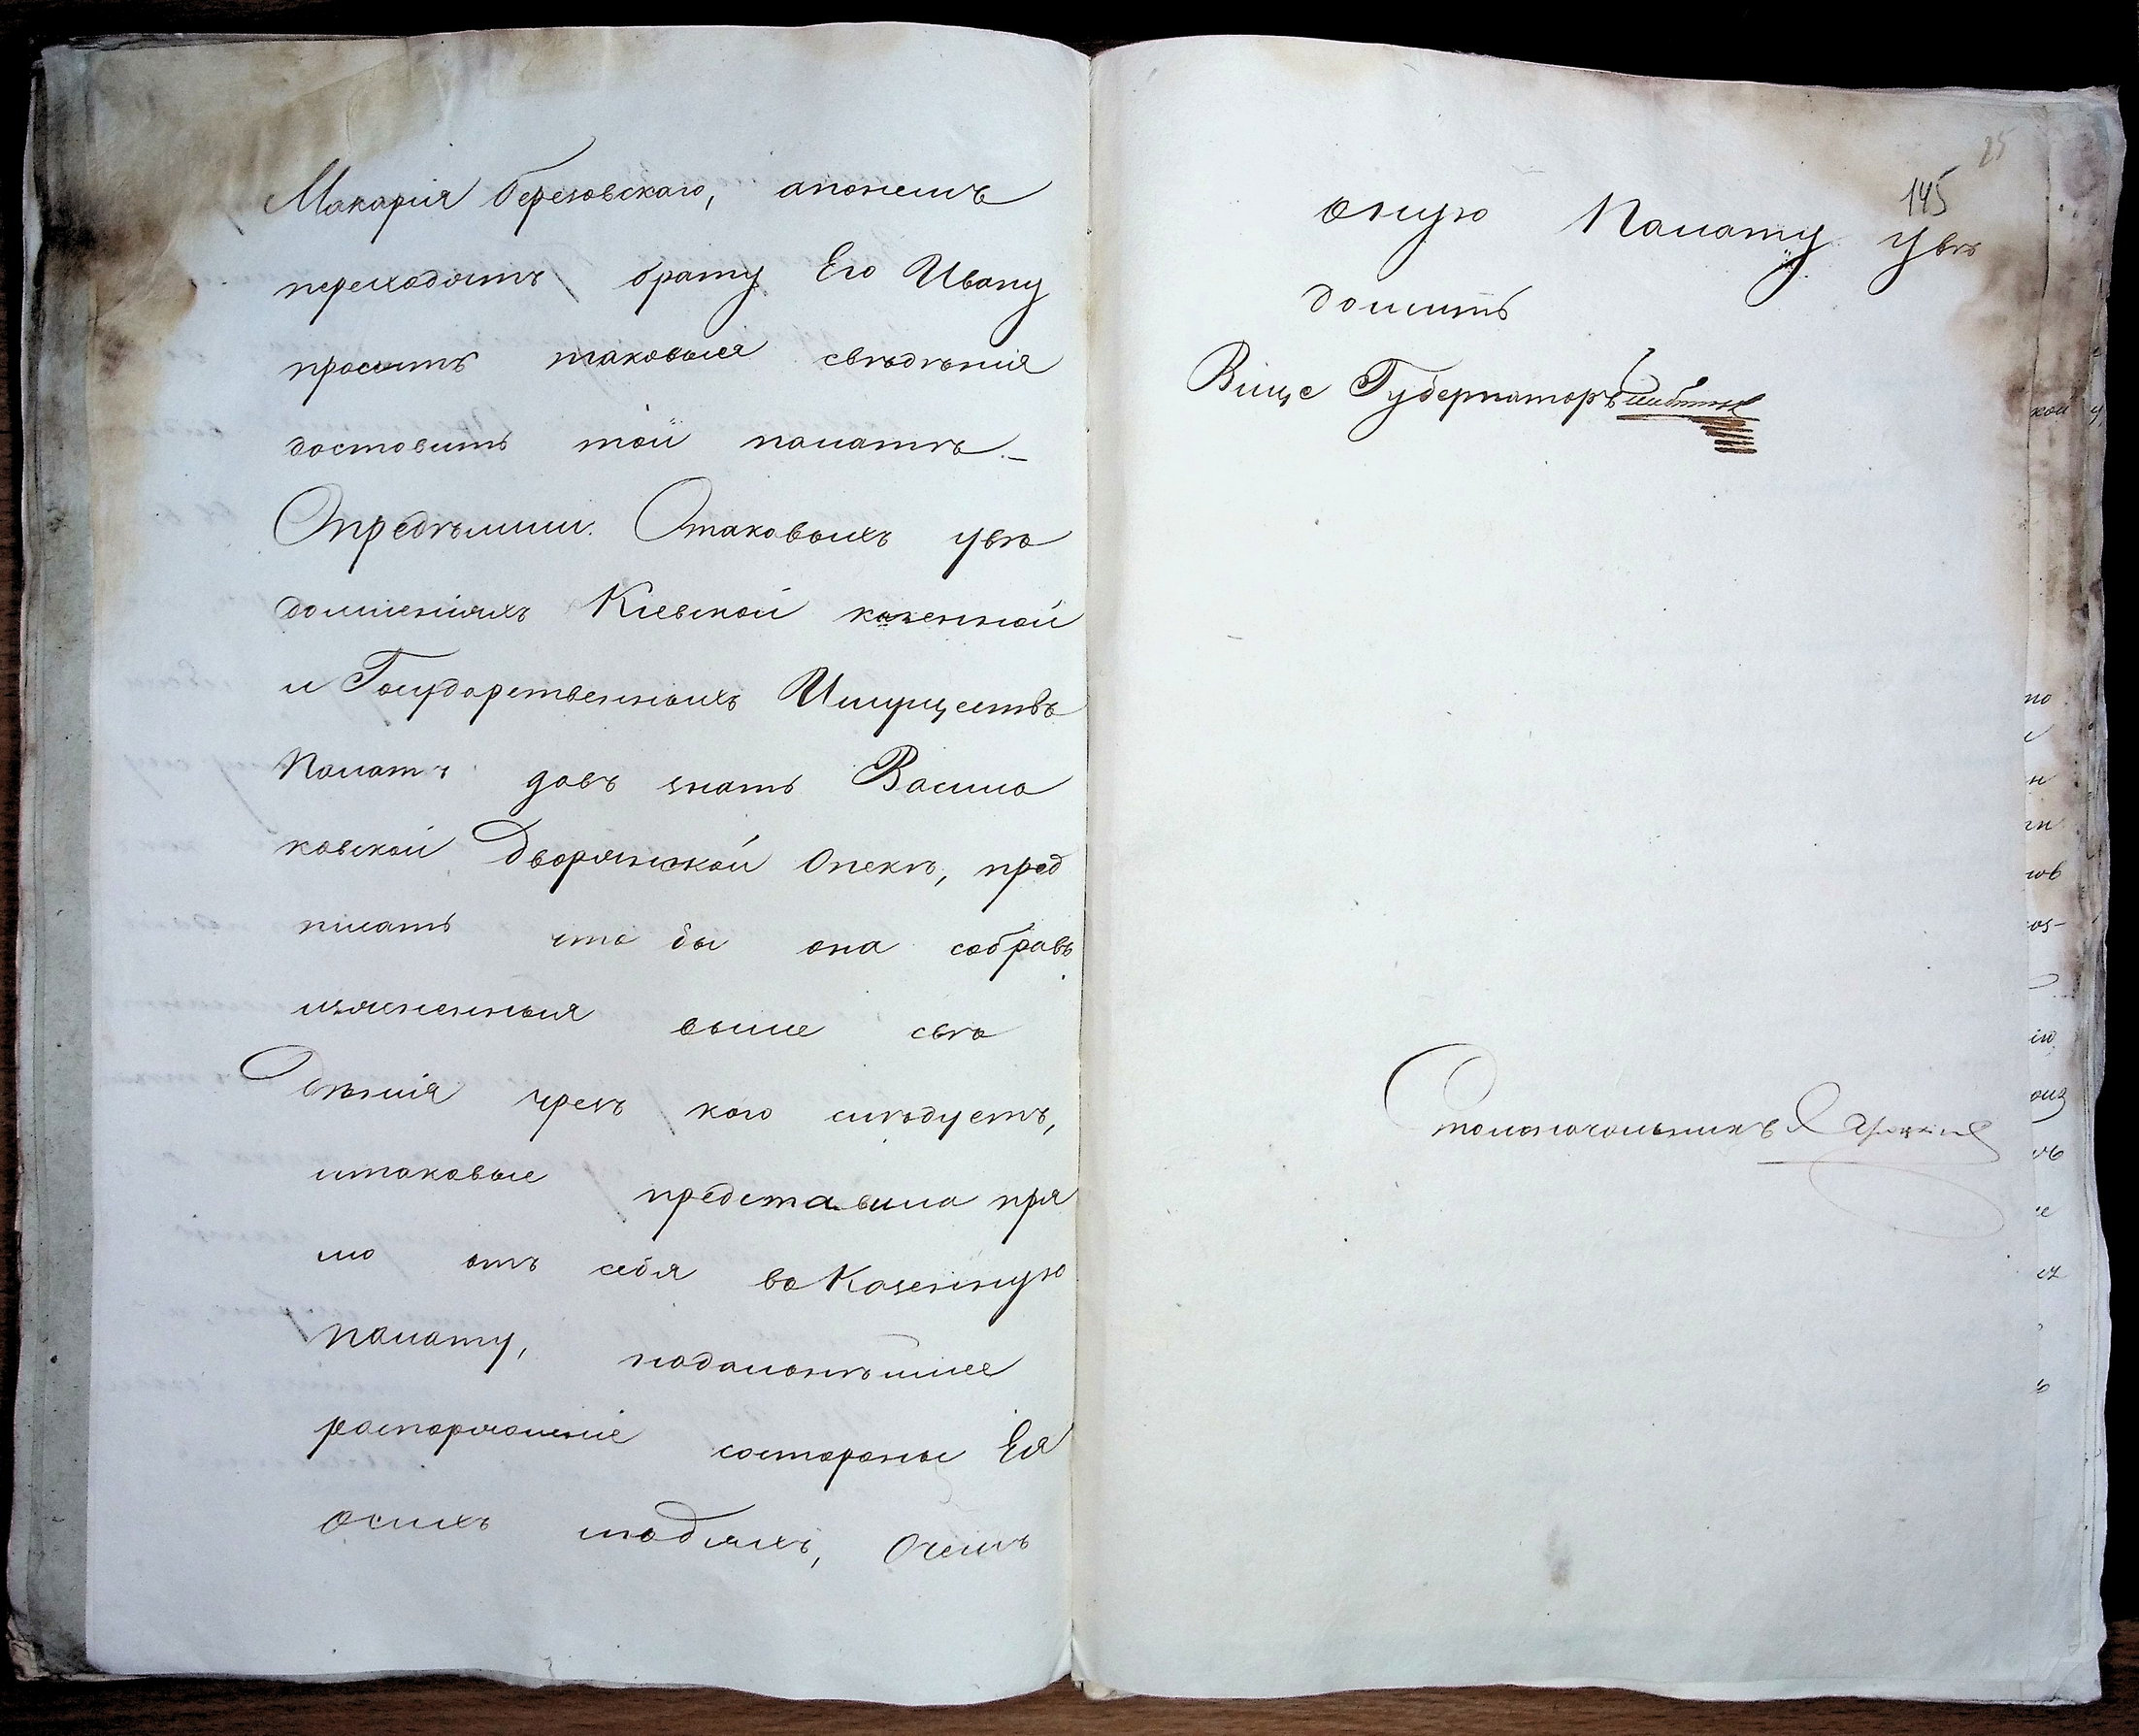 Макарія березовскаго, апонемъ
переходятъ брату Его Ивану
проситъ таковыя свѣдѣнія
доставить той палатѣ.–
Опредѣлили. Отаковыхъ увѣ
домленіяхъ Кіевской казенной
и Государственныхъ Имуществъ
Палатъ давъ знать Васила
ковской Дворянской Опекѣ, пред
писать что бы она собравъ
изясненныя выше свѣ
Дѣнія чрезъ кого слѣдуетъ,
итаковые представила пря
мо отъ себя во Казенную
палату, надальнѣйшее
распоряженіе состороны Ея
осихъ людяхъ, Очемъ
25
145
оную Палату Увѣ
домить
Вице Губернаторъ
Столоначальникъ